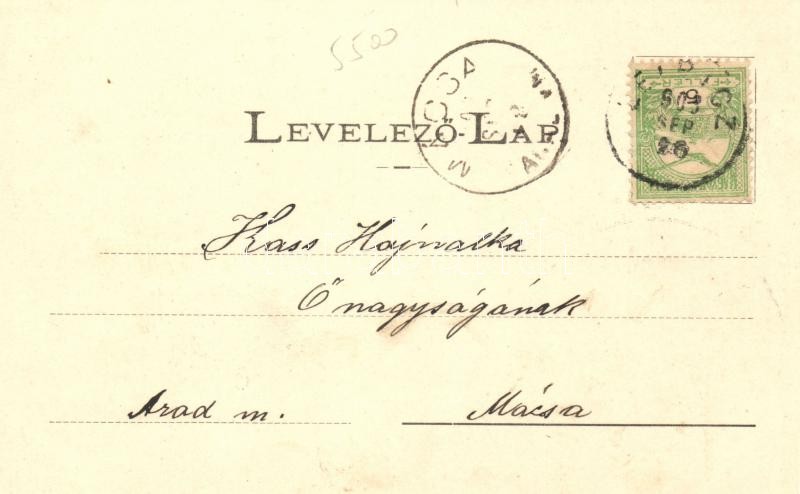 5500
LEVELEZŐ-LAP.
Kass Hajnalka
Ő nagyságának
Arad m. Mácsa
SEP
26